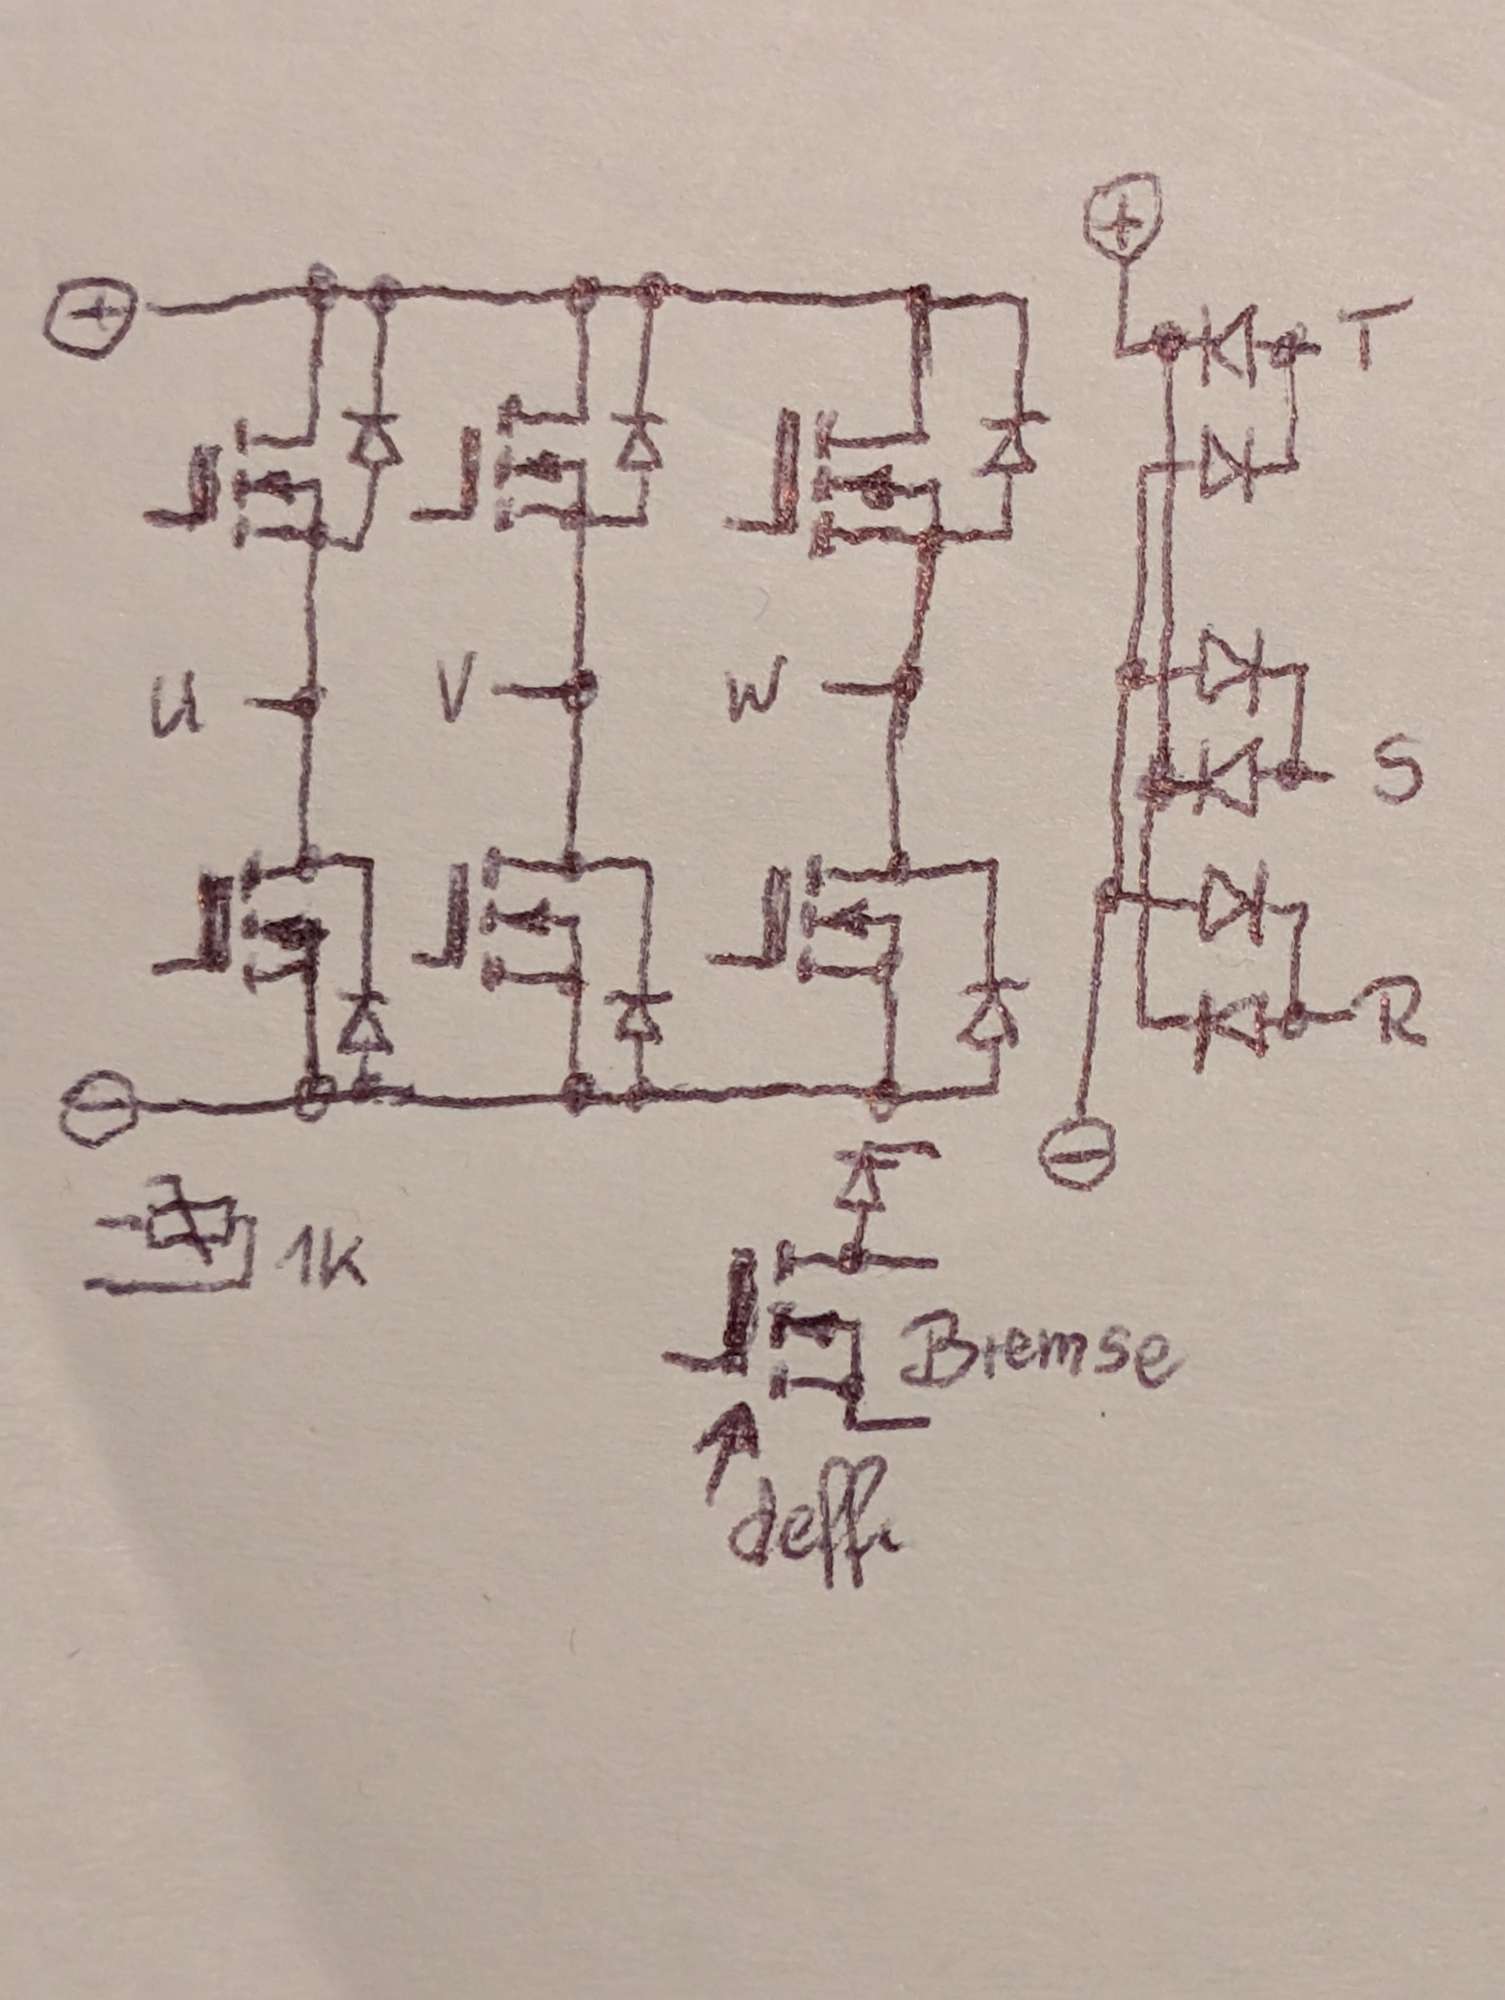 +
+
T
U
V
W
S
R
-
-
1K
Bremse
deff.